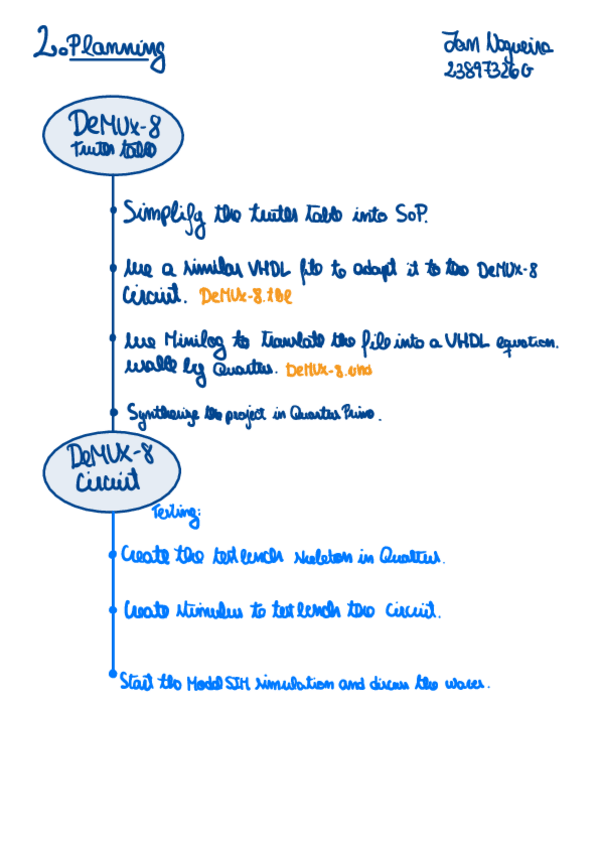 2. Planning
Jan Nogueira
23897326G
DeMUX-8
Truth table
Simplify the truth table into SoP.
Use a similar VHDL file to adapt it to the DeMUX-8
Circuit. DeMUX-8.tbl
Use Minilog to translate the file into a VHDL equation.
usable by Quartus. DeMUX-8.vhd
Synthesize the project in Quartus Prime.
DeMUX-8
Circuit
Testing:
Create the testbench skeleton in Quartus.
Create stimulus to testbench the Circuit.
Start the ModelSIM simulation and discuss the waves.